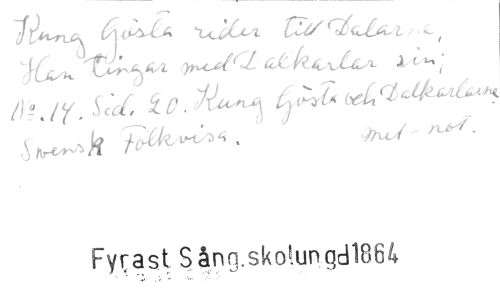 Kung Gösta rider till Dalarne,
Han tingar med Dalkarlar sin;
No. 14. Sid. 20. Kung Gösta och Dalkarlarne
Svensk Folkvisa. met-not.
Fyrast Sång.skolungd1864